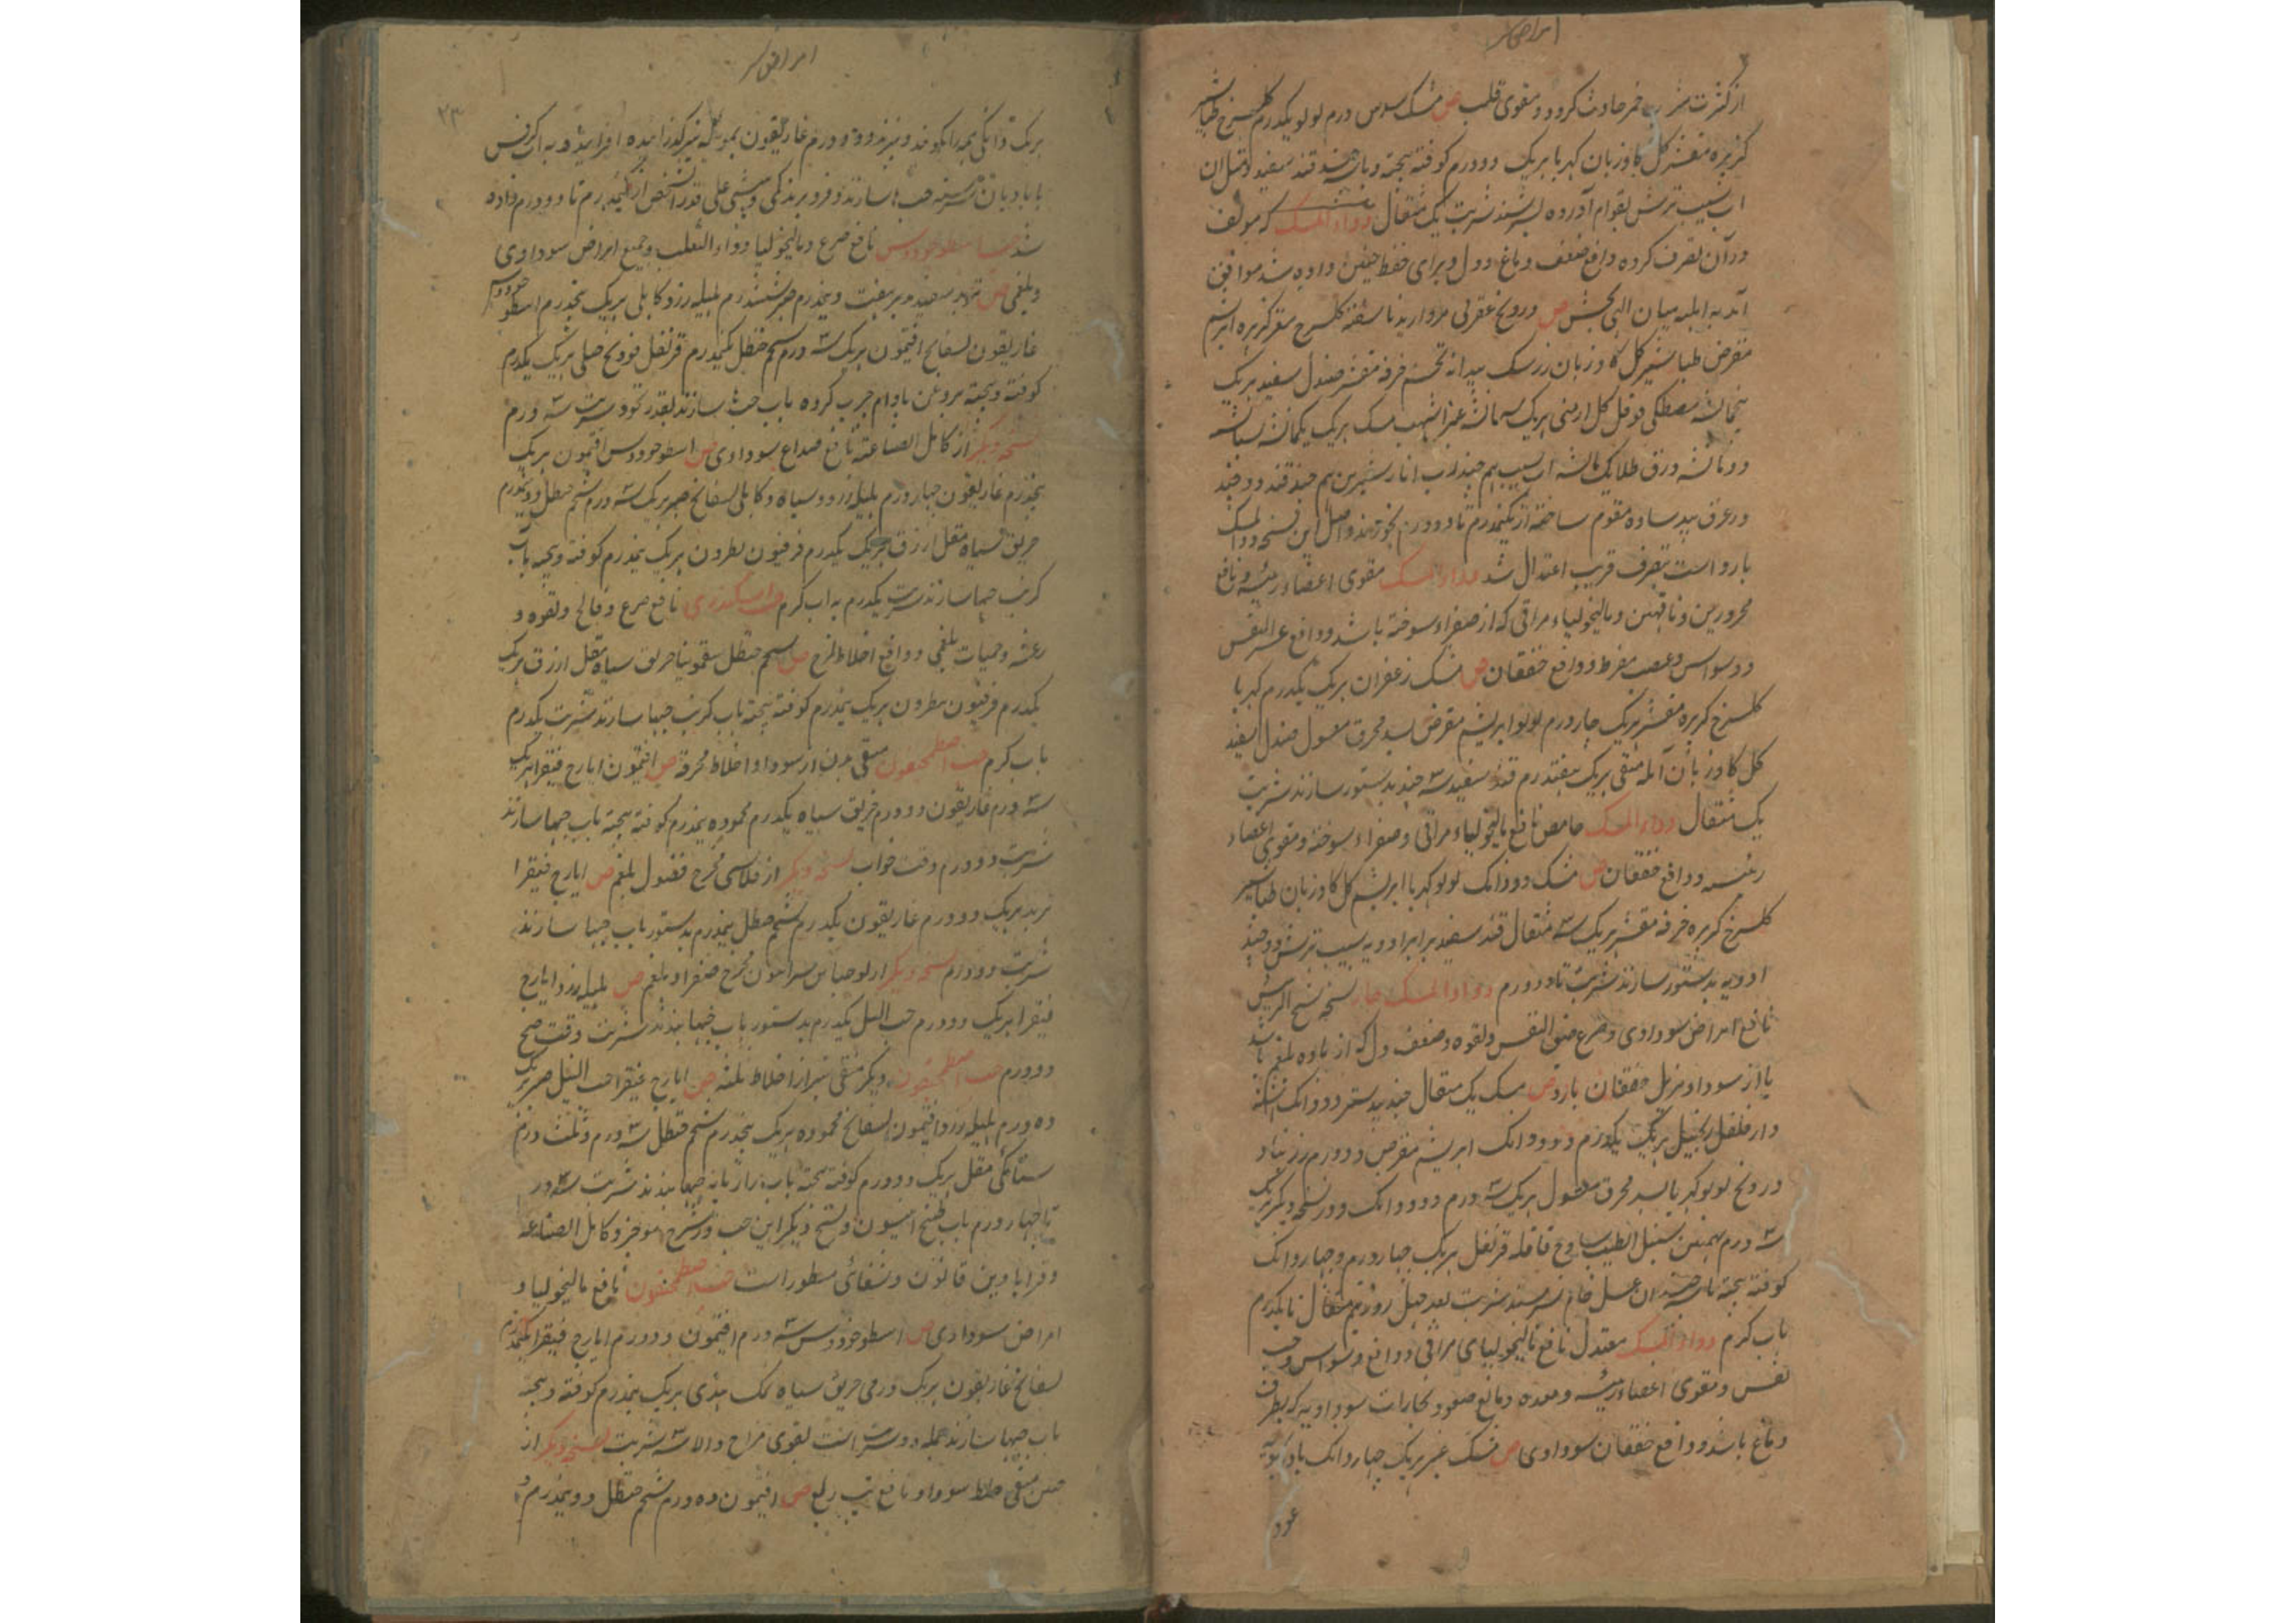 امراض سر
از کثرت شرب خمر حادث گردد و مقوی قلب ص مشک سوس درم لولو یکدرم گلسرخ طباشیر
کزبره مقشر گل گاوزبان کهربا هریک دو درم کوفته بیخته و با سه چند قند سفید و مثل آن
آب سیب ترش بقوام آورده بسرشند شربت یک مثقال دواء المسک که مولف
در آن تصرف کرده دافع ضعف دماغ و دل و برای حفظ جنین داده شد موافق
آمد به اهلیه میان الهی بخش ص درونج عقربی مروارید ناسفته گلسرخ مغز کزبره ابریشم
مقرض طباشیر گل گاوزبان زرشک بیدانه تخم خرفه مقشر صندل سفید هریک
پنجماشه مصطکی فوفل گل ارمنی هریک سه ماشه عنبر اشهب مسک هریک یکماشه
دو ماشه ورق طلا یک ماشه آب سیب هم چند آب انار شیرین هم چند قند دو چند
در عرق بید ساده مقوم ساخته از یکنیمدرم تا دو درم بخورند و اصل این نسخه دواء المسک
بارد است بتصرف قریب اعتدال شد دواء المسک مقوی اعضاء رئیسه و نافع
محرورین و ناقهین و مالیخولیاء مراقی که از صفراء سوخته باشد و دافع عسر النفس
و وسواس و غضب مفرط و دافع خفقان ص مشک زعفران هریک یکدرم کهربا
گلسرخ کزبره مقشر هریک چار درم لولو ابریشم مقرض بسد محرق مغسول صندل سفید
گل گاوزبان آمله منقی هریک هفتدرم قند سفید سه چند بدستور سازند شربت
یک مثقال دواء المسک حامض نافع مالیخولیاء مراقی و صفراء سوخته و مقوی اعضاء
رئیسه و دافع خفقان ص مشک دو دانک لولو کهربا ابریشم گل گاوزبان طباشیر
گلسرخ کزبره خرفه مقشر هریک سه مثقال قند سفید برابر ادویه سیب ترش دو چند
ادویه بدستور سازند شربت تا دو درم دواء المسک حار نسخه شیخ الرئیس
نافع امراض سوداوی و صرع ضیق النفس و لقوه و ضعف دل که از ماده بلغم باشد
یا از سودا و مزیل خفقان بارد ص مسک یک مثقال جندبیدستر دو دانک اشنه
دارفلفل زنجبیل هریک یکدرم و دو دانک ابریشم مقرض دو درم زرنباد
درونج لولو کهربا بسد محرق مغسول هریک سه درم دو دانک و در نسخه دیگر هریک
سه درم بهمنین سنبل الطیب ساذج قاقله قرنفل هریک چهار درم و چهار دانک
کوفته بیخته با سه چند آن عسل خام بسرشند شربت بعد چهل روز نیم مثقال تا یکدرم
باب گرم دواء المسک معتدل نافع مالیخولیای مراقی و دافع وسواس و خبث
نفس و مقوی اعضاء رئیسه و معده و مانع صعود بخارات سوداویه که بطرف
دماغ باشد و دافع خفقان سوداوی ص مشک عنبر هریک چهار دانک بادرنبویه
عود
امراض سر
۲۳
هریک دانگی همه را بکوبند و بیزند و دو درم غاریقون بموئینه بیز گذرانیده افزایند و به آب کرفس
یا بادیان سرشته حبها سازند و فرو برند کمی و بیشی علی قدر الشخص از یکنیمدرم تا دو درم داده
شد حب اسطوخودوس نافع صرع و مالیخولیا و داء الثعلب و جمیع امراض سوداوی
و بلغمی ص تربد سفید هفت و نیمدرم صبر ششدرم هلیله زرد کابلی هریک پنجدرم اسطوخودوس
غاریقون بسفایج افتیمون هریک سه درم شحم حنظل یکنیمدرم قرنفل فودنج جبلی هریک یکدرم
کوفته و بیخته بروغن بادام چرب کرده باب حبها سازند بقدر نخود شربت سه درم
نسخه دیگر از کامل الصناعه نافع صداع سوداوی ص اسطوخودوس افتیمون هریک
پنجدرم غاریقون چهار درم هلیله زرد و سیاه و کابلی بسفایج صبر هریک سه درم شحم حنظل دو نیمدرم
خربق سیاه مقل ازرق هریک یکدرم فرفیون نطرون هریک نیمدرم کوفته و بیخته بآب
کرنب حبها سازند شربت یکدرم به آب گرم حب اسکندری نافع صرع و فالج و لقوه و
رعشه و حمیات بلغمی و دافع اخلاط لزج ص شحم حنظل سقمونیا خربق سیاه مقل ازرق هریک
یکدرم فرفیون نطرون هریک نیمدرم کوفته بیخته باب کرنب حبها سازند شربت یکدرم
باب گرم حب اصطمحیقون منقی بدن از سودا و اخلاط محرقه ص افتیمون ایارج فیقرا هریک
سه درم غاریقون دو درم خربق سیاه یکدرم محموده نیمدرم کوفته بیخته باب حبها سازند
شربت دو درم وقت خواب نسخه دیگر از قلانسی مخرج فضول بلغم ص ایارج فیقرا
تربد هریک دو درم غاریقون یکدرم شحم حنظل نیمدرم بدستور باب حبها سازند
شربت دو درم نسخه دیگر از یوحنا بن سرابیون مخرج صفرا و بلغم ص هلیله زرد ایارج
فیقرا هریک دو درم حب النیل یکدرم بدستور باب حبها بندند شربت وقت صبح
دو درم حب اصطمحیقون دیگر منقی سر از اخلاط ثلثه ص ایارج فیقرا حب النیل صبر هریک
ده درم هلیله زرد افتیمون بسفایج محموده هریک پنجدرم شحم حنظل سه درم و ثلث درم
سنامکی مقل هریک دو درم کوفته بیخته باب رازیانه حبها بندند شربت سه درم
تا چهار درم باب طبیخ انیسون و نسخ دیگر این حب در شرح موجز و کامل الصناعه
و قرابادین قانون و شفائی مسطور است حب اصطمحیقون نافع مالیخولیا و
امراض سوداوی ص اسطوخودوس سه درم افتیمون دو درم ایارج فیقرا یکنیمدرم
بسفایج غاریقون هریک درمی خربق سیاه نمک هندی هریک نیمدرم کوفته و بیخته
باب حبها سازند جمله دو شربت است بقوی مزاج والا سه شربت نسخه دیگر از
منقی خلط سودا و نافع تپ ربع ص افتیمون ده درم شحم حنظل دو نیمدرم